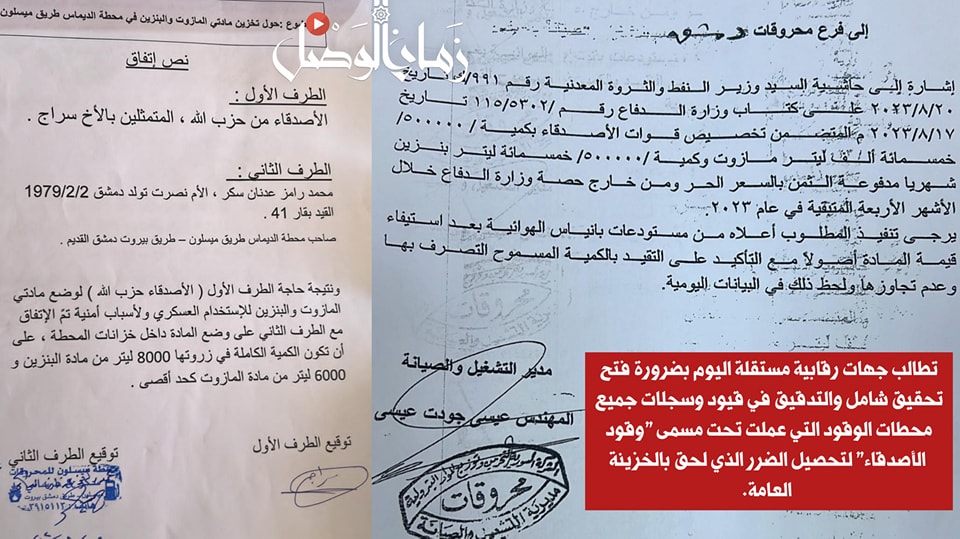 زمان الوصل
حول تخزين مادتي المازوت والبنزين في محطة الديماس طريق ميسلون
نص إتفاق
الطرف الأول :
الأصدقاء من حزب الله ، المتمثلين بالأخ سراج .
الطرف الثاني :
محمد رامز عدنان سكر ، الأم نصرت تولد دمشق 1979/2/2
القيد بقار 41 .
صاحب محطة الديماس طريق ميسلون – طريق بيروت دمشق القديم .
ونتيجة حاجة الطرف الأول ( الأصدقاء حزب الله ) لوضع مادتي
المازوت والبنزين للإستخدام العسكري ولأسباب أمنية تمّ الإتفاق
مع الطرف الثاني على وضع المادة داخل خزانات المحطة ، على
أن تكون الكمية الكاملة في زروتها 8000 ليتر من مادة البنزين و
6000 ليتر من مادة المازوت كحد أقصى .
توقيع الطرف الأول
توقيع الطرف الثاني
محطة ميسلون للمحروقات
سراج
إلى فرع محروقات دمشق
إشارة إلى حاشية السيد وزير النفط والثروة المعدنية رقم ٩٩١/ك تاريخ
٢٠٢٣/٨/٢٠ على كتاب وزارة الدفاع رقم ١١٥/٥٣٠٢/ تاريخ
٢٠٢٣/٨/١٧ م المتضمن تخصيص قوات الأصدقاء بكمية /٥٠٠٠٠٠/
خمسمائة ألف ليتر مازوت وكمية /٥٠٠٠٠٠/ خمسمائة ليتر بنزين
شهريا مدفوعة الثمن بالسعر الحر ومن خارج حصة وزارة الدفاع خلال
الأشهر الأربعة المتبقية في عام ٢٠٢٣.
يرجى تنفيذ المطلوب أعلاه من مستودعات بانياس الهوائية بعد استيفاء
قيمة المادة أصولاً مع التأكيد على التقيد بالكمية المسموح التصرف بها
وعدم تجاوزها ولحظ ذلك في البيانات اليومية.
مدير التشغيل والصيانة
المهندس عيسى جودت عيسى
محروقات
مديرية التشغيل والصيانة
تطالب جهات رقابية مستقلة اليوم بضرورة فتح
تحقيق شامل والتدقيق في قيود وسجلات جميع
محطات الوقود التي عملت تحت مسمى "وقود
الأصدقاء" لتحصيل الضرر الذي لحق بالخزينة
العامة.